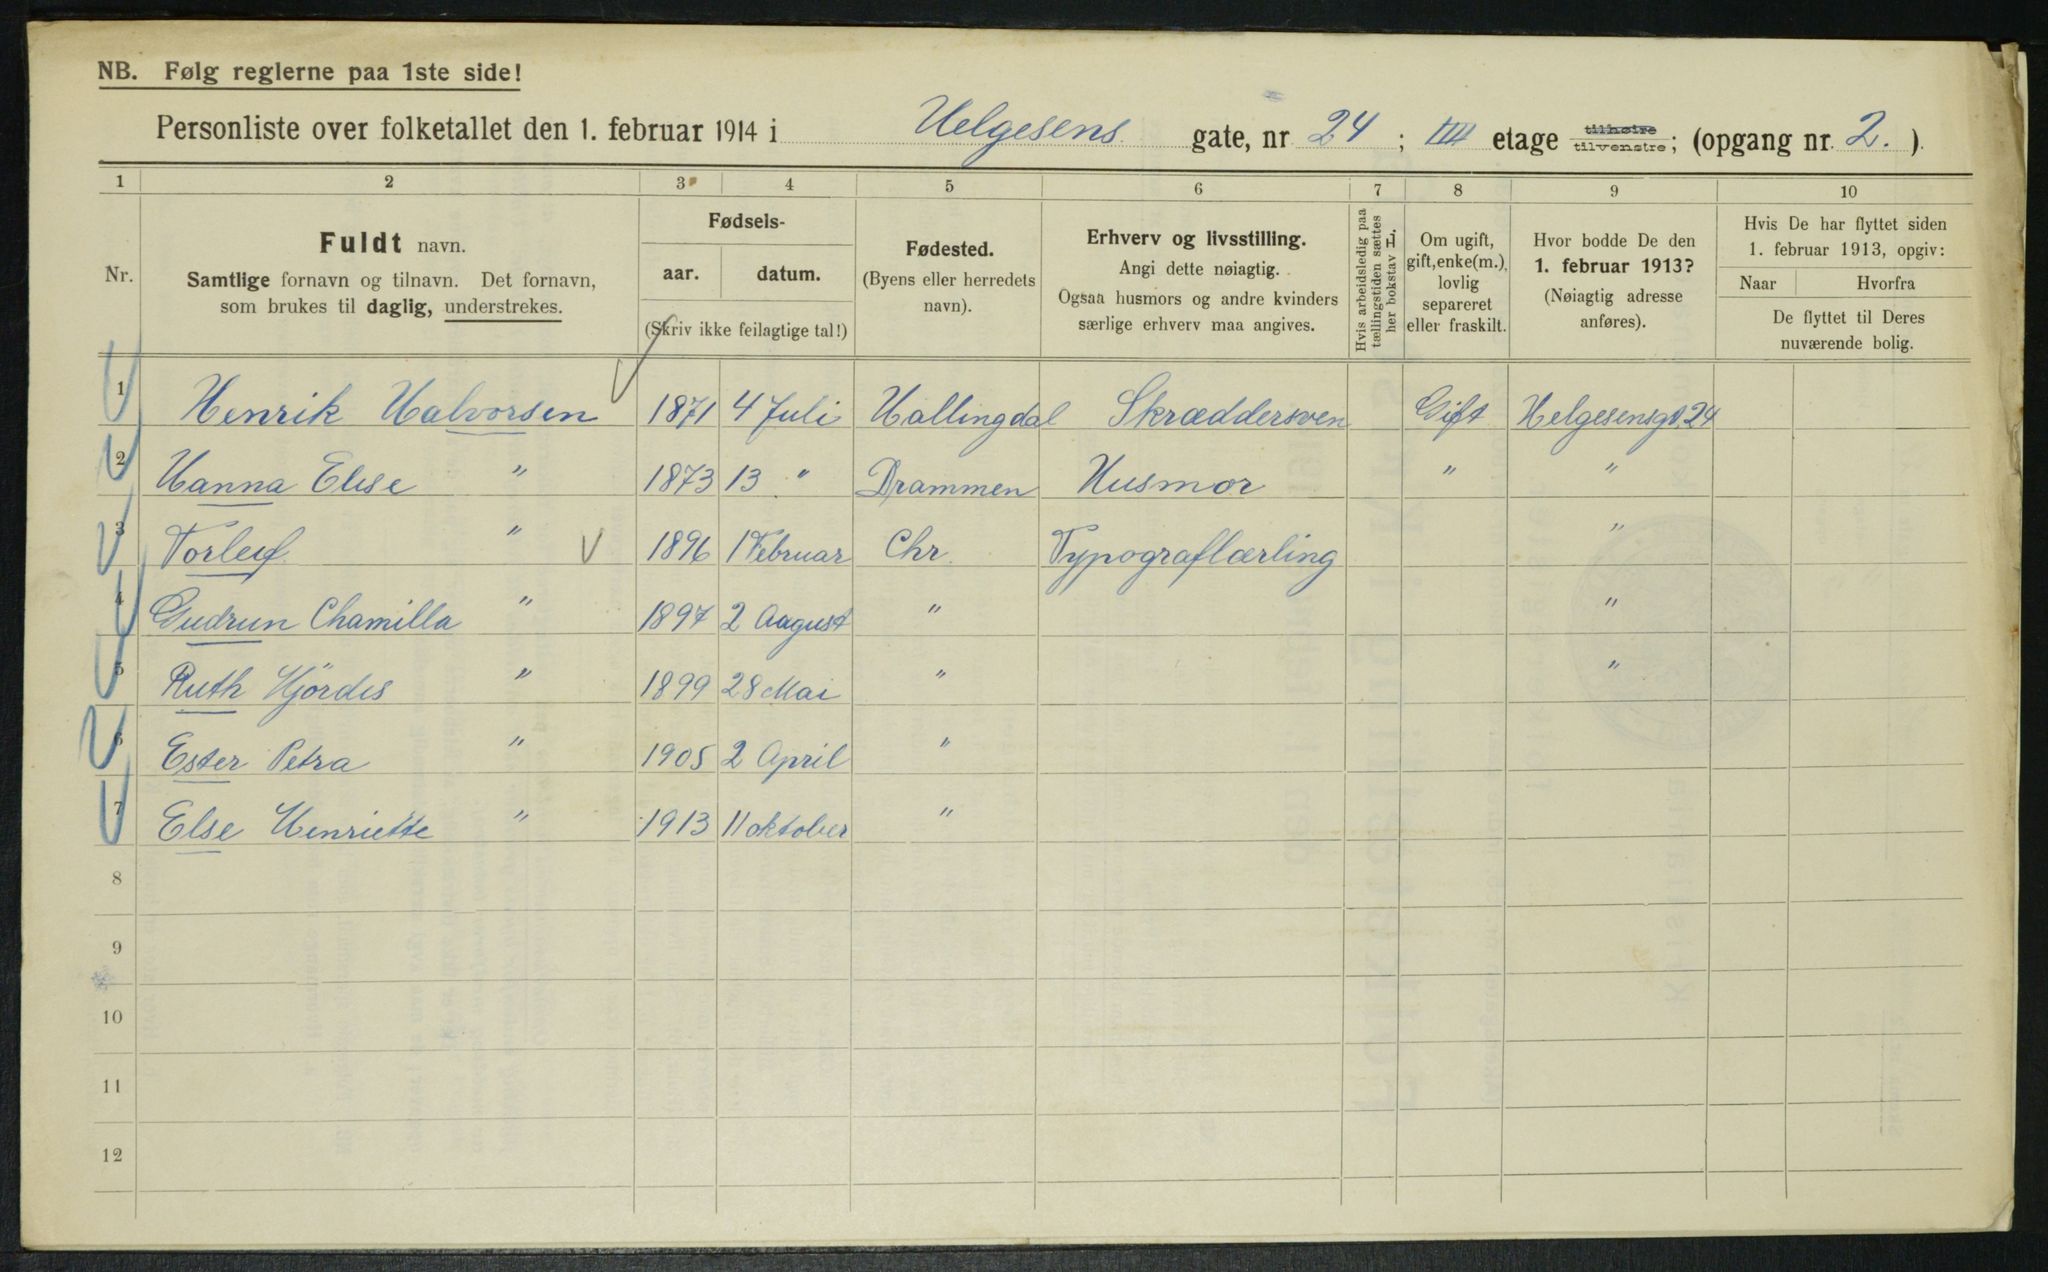 NB. Følg reglerne paa 1ste side!
Personliste over folketallet den 1. februar 1914 i Helgesens gate, nr. 24; III etage tilhøire tilvenstre; (opgang nr. 2.).
1 2 3 4 5 6 7 8 9 10
Nr.
Fuldt navn.
Samtlige fornavn og tilnavn. Det fornavn,
som brukes til daglig, understrekes.
Fødsels-
aar. datum.
(Skriv ikke feilagtige tal!)
Fødested.
(Byens eller herredets
navn).
Erhverv og livsstilling.
Angi dette nøiagtig.
Ogsaa husmors og andre kvinders
særlige erhverv maa angives.
Hvis arbeidsledig paa
tællingstiden sættes
her bokstav L.
Om ugift,
gift, enke(m.),
lovlig
separeret
eller fraskilt.
Hvor bodde De den
1. februar 1913?
(Nøiagtig adresse
anføres).
Hvis De har flyttet siden
1. februar 1913, opgiv:
Naar Hvorfra
De flyttet til Deres
nuværende bolig.
1 Henrik Halvorsen 1871 4 Juli Hallingdal Skræddersven Gift Helgesensgt. 24
2 Hanna Elise " 1873 13 " Drammen Husmor " "
3 Torleif " 1896 1 Februar Chr. Typograflærling "
4 Gudrun Chamilla " 1897 2 August " "
5 Ruth Hjördis " 1899 28 Mai " "
6 Ester Petra " 1905 2 April "
7 Else Henriette " 1913 11 oktober "
8
9
10
11
12